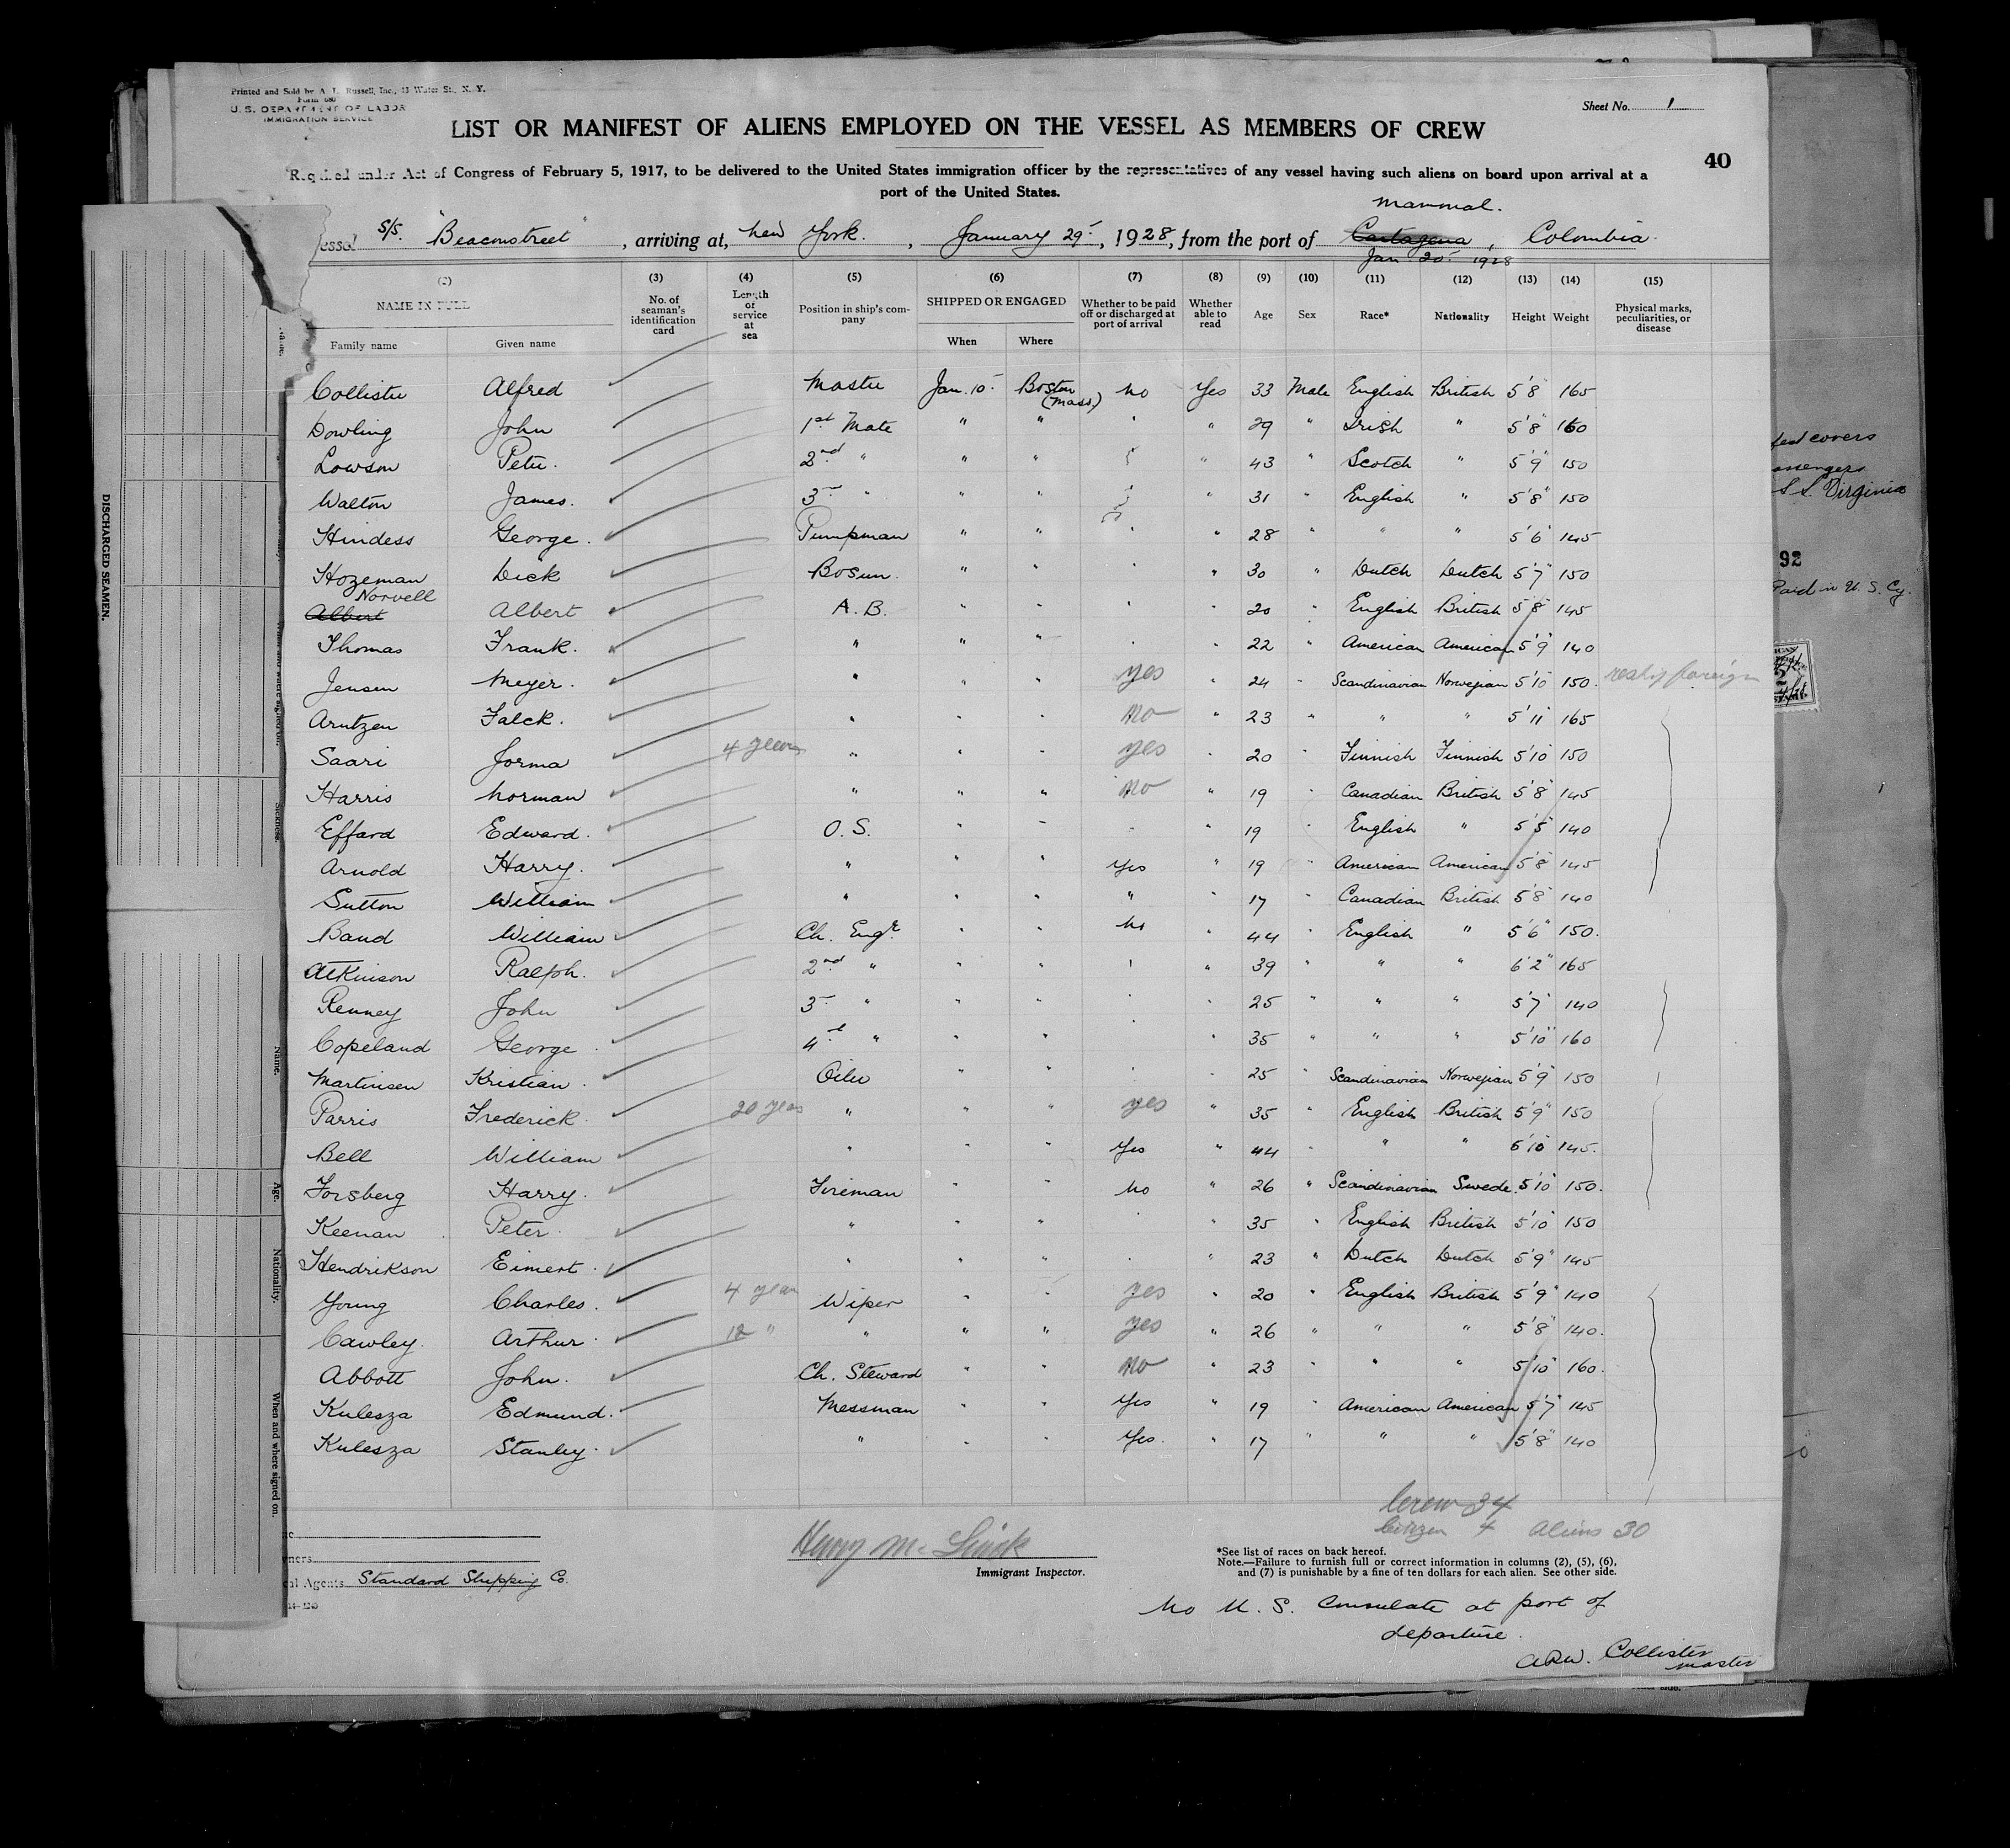 Printed and Sold by A. L. Russell, Inc., 43 Water St., N. Y.
Form 680
U. S. DEPARTMENT OF LABOR
IMMIGRATION SERVICE
Sheet No. 1
LIST OR MANIFEST OF ALIENS EMPLOYED ON THE VESSEL AS MEMBERS OF CREW
40
Required under Act of Congress of February 5, 1917, to be delivered to the United States immigration officer by the representatives of any vessel having such aliens on board upon arrival at a
port of the United States.
Mammal.
essel S/S. "Beaconstreet", arriving at, New York., January 29, 1928, from the port of Cartagena, Colombia.
Jan. 20 1928
(2) (3) (4) (5) (6) (7) (8) (9) (10) (11) (12) (13) (14) (15)
NAME IN FULL No. of seaman's identification card Length of service at sea Position in ship's company SHIPPED OR ENGAGED Whether to be paid off or discharged at port of arrival Whether able to read Age Sex Race* Nationality Height Weight Physical marks, peculiarities, or disease
Family name Given name When Where
Collister Alfred Master Jan. 10 Boston (Mass) No Yes 33 Male English British 5'8" 165
Dowling John 1st Mate " " " " 29 " Irish " 5'8" 160
Lowson Peter. 2nd " " " " " 43 " Scotch " 5'9" 150
Walton James. 3 " " " " " 31 " English " 5'8" 150
Hindess George. Pumpman " " " " 28 " " " 5'6" 145
Hozeman Dick Bosun. " " " " 30 " Dutch Dutch 5'7" 150
Norvell
Albert Albert A. B. " " " " 20 " English British 5'8" 145
Thomas Frank. " " " " " 22 " American American 5'9" 140
Jensen Meyer. " " " yes " 24 " Scandinavian Norwegian 5'10" 150.
Arntzen Falck. " " " No " 23 " " " 5'11" 165
Saari Jorma 4 years " " " yes " 20 " Finnish Finnish 5'10" 150
Harris Norman " " " No " 19 " Canadian British 5'8" 145
Effard Edward. O. S. " " " " 19 " English " 5'5" 140
Arnold Harry. " " " Yes " 19 " American American 5'8" 145
Sutton William " " " " " 17 " Canadian British 5'8" 140
Band William Ch. Engr. " " No " 44 " English " 5'6" 150.
Atkinson Ralph. 2nd " " " " " 39 " " " 6'2" 165
Renney John 3 " " " " " 25 " " " 5'7" 140
Copeland George 4 " " " " " 35 " " " 5'10" 160
Martinsen Kristian. Oiler " " " " 25 " Scandinavian Norwegian 5'9" 150
Parris Frederick. 20 years " " " yes " 35 " English British 5'9" 150
Bell William " " " Yes " 44 " " " 5'10" 145.
Forsberg Harry. Fireman " " No " 26 " Scandinavian Swede. 5'10" 150.
Keenan Peter. " " " " " 35 " English British 5'10" 150
Hendrikson Eimert. " " " " " 23 " Dutch Dutch 5'9" 145
Young Charles. 4 years Wiper " " yes " 20 " English British 5'9" 140
Cawley. Arthur. 12 " " " " yes " 26 " " " 5'8" 140.
Abbott John. Ch. Steward " " No " 23 " " " 5'10" 160.
Kulesza Edmund. Messman " " Yes " 19 " American American 5'7" 145
Kulesza Stanley. " " " Yes. " 17 " " " 5'8" 140
Crew 34
Citizen 4 Aliens 30
Immigrant Inspector.
*See list of races on back hereof.
Note.—Failure to furnish full or correct information in columns (2), (5), (6),
and (7) is punishable by a fine of ten dollars for each alien. See other side.
Agents Standard Shipping Co.
No U. S. Consulate at port of
departure.
Collister
master
DISCHARGED SEAMEN.
Sickness.
Name.
Age.
Nationality.
When and where signed on.
covers
S.S. Virginia
92
Paid in U. S. Cy.